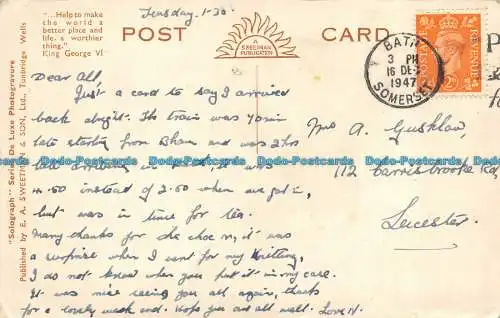 "...Help to make
the world a
better place and
life a worthier
thing."
King George VI
"Solograph" Series De Luxe Photogravure
Published by E. A. SWEETMAN & SON, Ltd., Tunbridge Wells
Tuesday. 1-30
POST
A
SWEETMAN
PUBLICATION
CARD
BATH
3 PM
16 DE
1947
SOMERSET
POSTAGE
REVENUE
2D
Dear All,
Just a card to say I arrived
back alright. The train was 40 min
late starting from Bham and was 2 hrs
late arriving in, it was
4.50 instead of 2.50 when we got in,
but was in time for tea.
Many thanks for the choc n, it was
a surprise when I went for my Knitting,
I do not know when you put it in my case.
It was nice seeing you all again, thanks
for a lovely week end. Hope you are all well. Love N.
Mrs A.
112 Carisbrooke Rd,
Leicester.